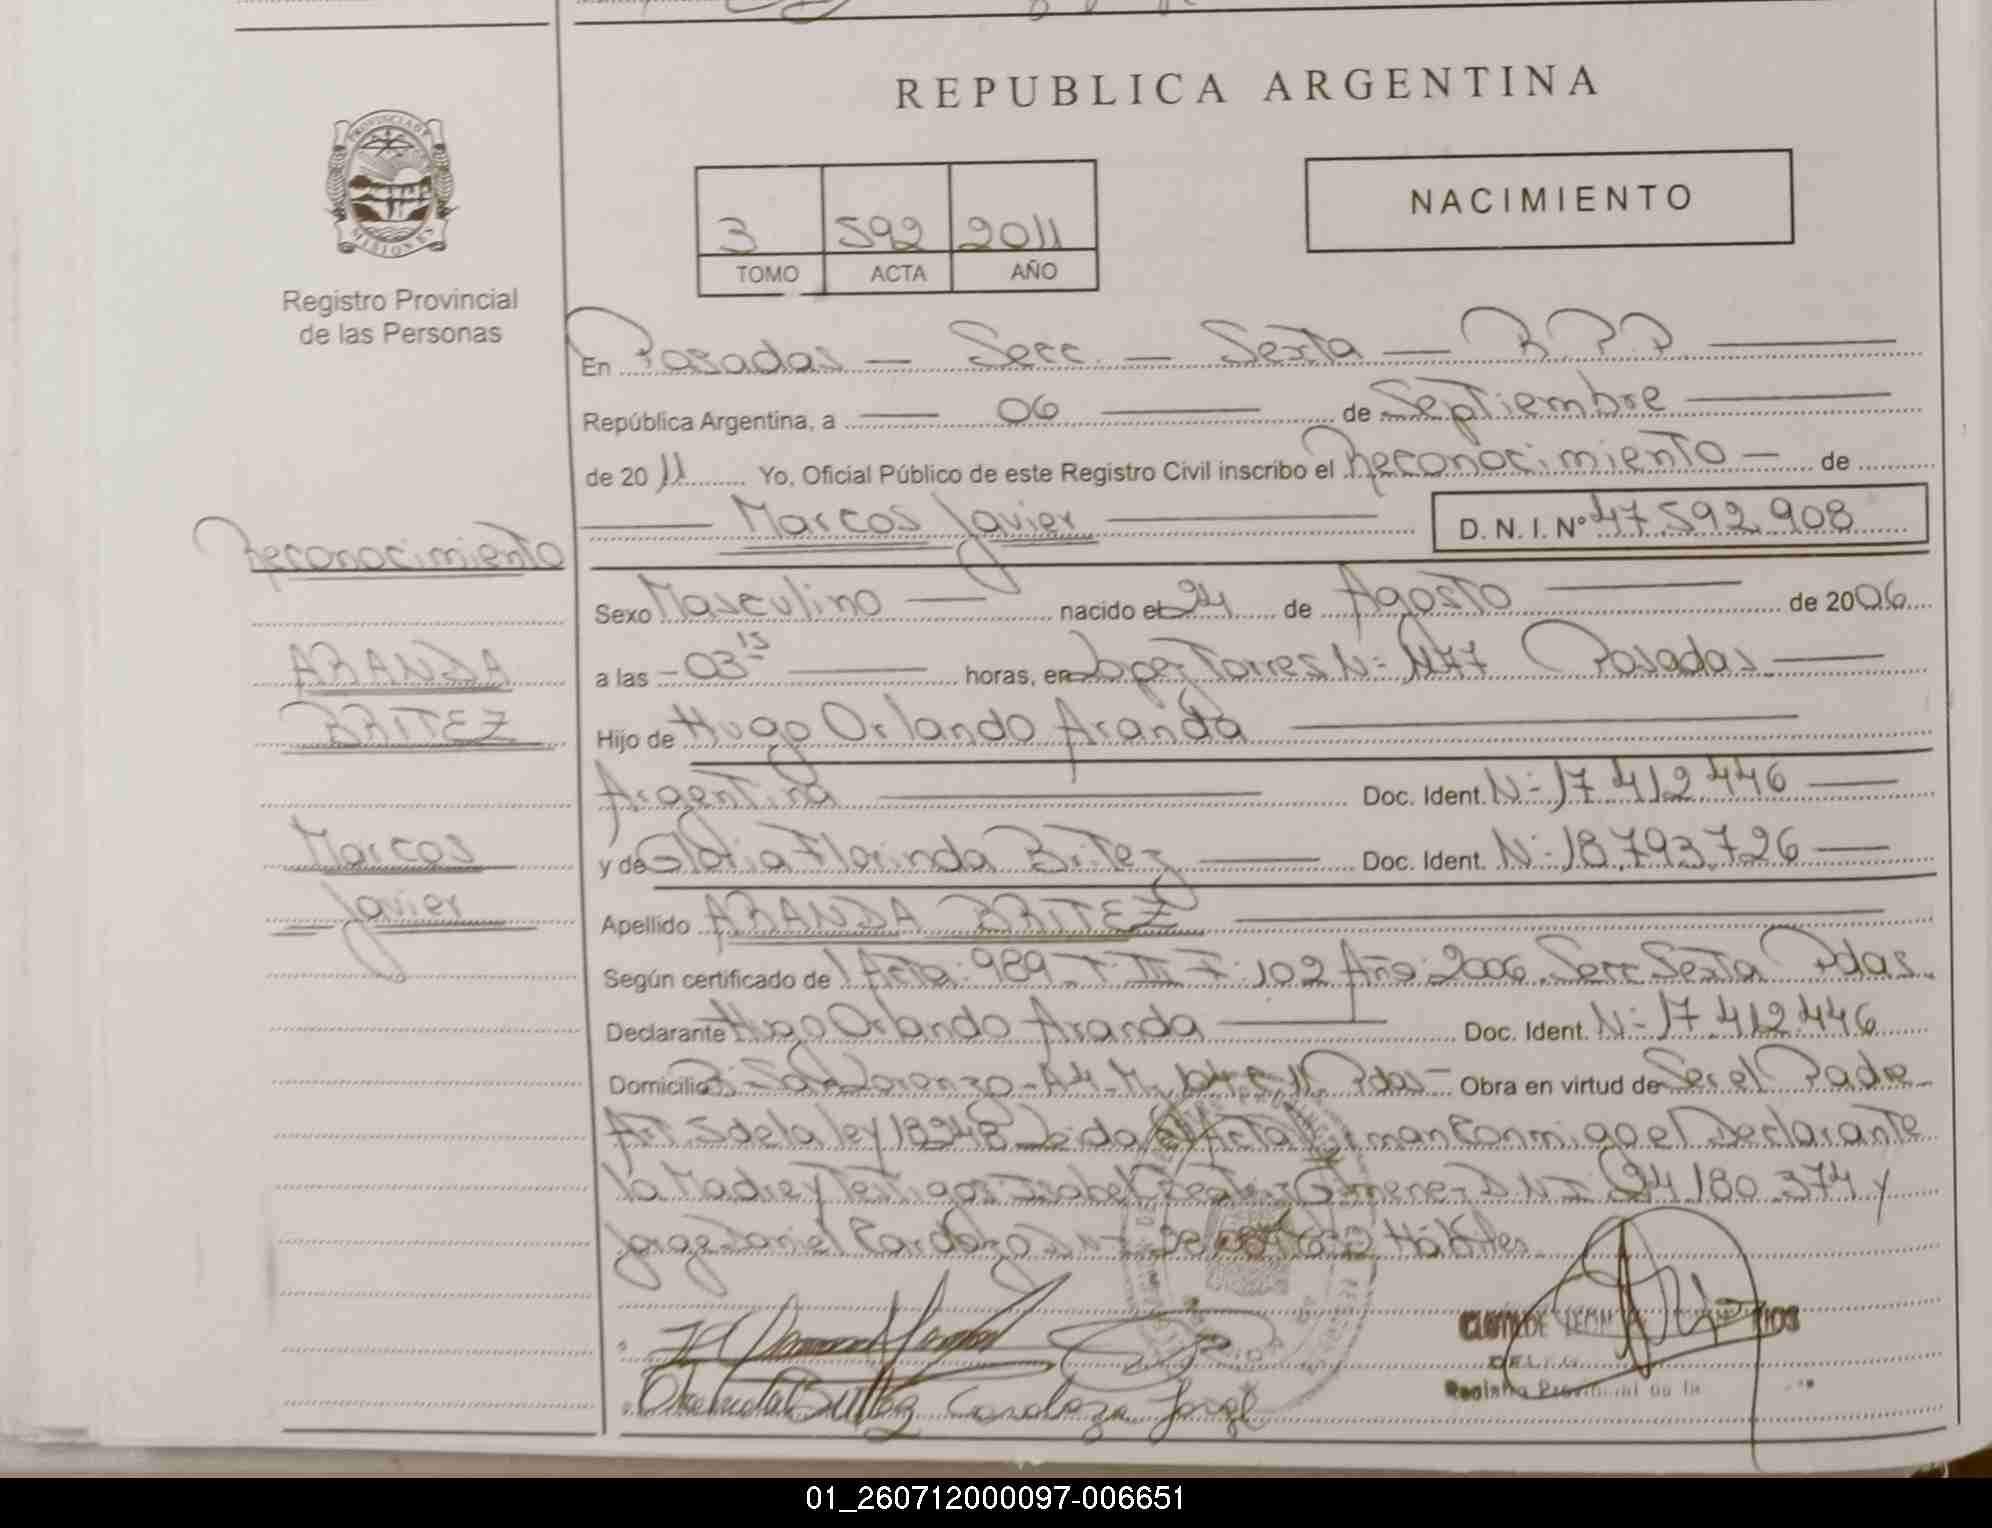 REPUBLICA ARGENTINA
PROVINCIA DE
MISIONES
Registro Provincial
de las Personas
3 592 2011
TOMO ACTA AÑO
NACIMIENTO
En Posadas — Secc. — Sexta —
República Argentina, a — 06 — de Septiembre —
de 2011 Yo, Oficial Público de este Registro Civil inscribo el Reconocimiento — de
— Marcos Javier — D. N. I. Nº 47.592.908
Reconocimiento
Sexo Masculino — nacido el 24 de Agosto — de 2006
ARANDA
a las - 03 15 — horas, en Lopez Torres N= 1177 Posadas —
BRITEZ
Hijo de Hugo Orlando Aranda —
Argentina — Doc. Ident. N= 17.412.446 —
Marcos
y de Gloria Florinda Britez — Doc. Ident. N= 18.793.726 —
Javier
Apellido ARANDA BRITEZ —
Según certificado de Acta: 989 T: III F: 102 Año: 2006 Secc Sexta Pdas.
Declarante Hugo Orlando Aranda — Doc. Ident. N= 17.412.446
Domicilio San Lorenzo Pdas — Obra en virtud de Ser el Padre
Art 2 de la ley 18248 Leida el Acta firman conmigo el Declarante
la Madre y Testigos: Isabel Gimenez DNI 24.180.374 y
Jorge Daniel Cardozo
Cardozo Jorge
Registro Provincial de la
01_260712000097-006651